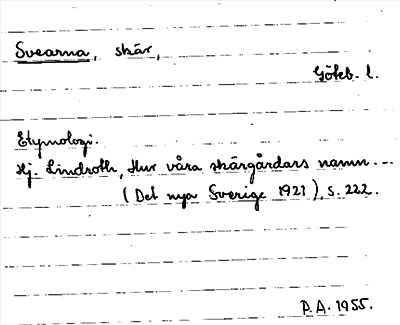 Svearna, skär,
Göteb. l.
Etymologi.
Hj. Lindroth, Hur våra skärgårdars namn...
(Det nya Sverige 1921), s. 222.
P.A. 1955.